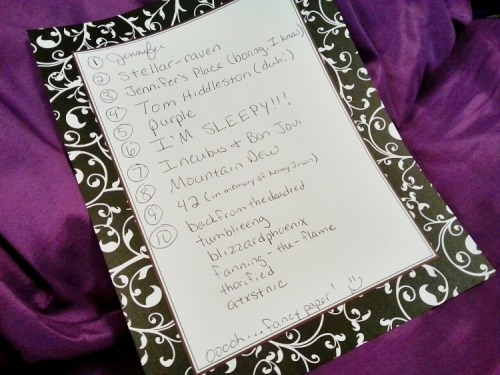 ① Jennifer
② Stellar-raven
③ Jennifer's Place (boring I know)
④ Tom Hiddleston (duh!)
⑤ purple
⑥ I'M SLEEPY!!!
⑦ Incubus + Bon Jovi
⑧ Mountain Dew
⑨ 42 (in memory of Kenny Irwin)
⑩ backfromthedeadred
tumblieeng
blizzardphoenix
fanning-the-flame
thorified
atxstnic
ooooh... fancy paper! :)